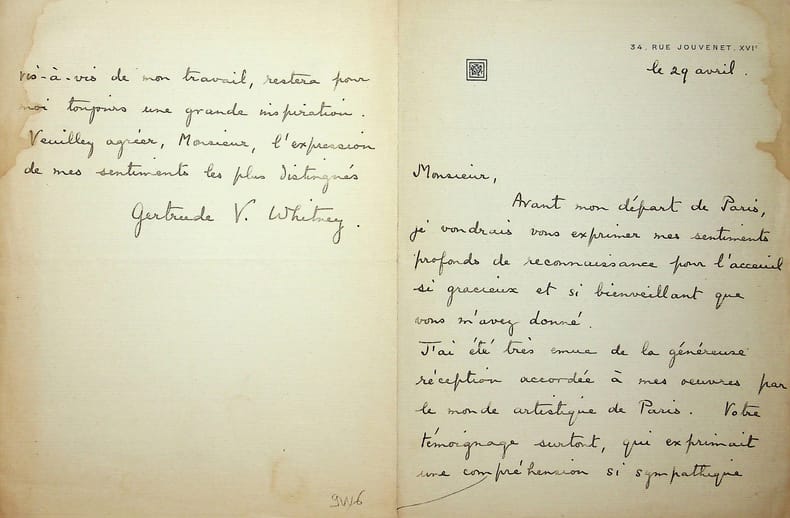 34, RUE JOUVENET, XVIᵉ
le 29 avril.
Monsieur,
Avant mon départ de Paris,
je voudrais vous exprimer mes sentiments
profonds de reconnaissance pour l'acceuil
si gracieux et si bienveillant que
vous m'avez donné.
J'ai été très emue de la généreuse
réception accordée à mes oeuvres par
le monde artistique de Paris. Votre
témoignage surtout, qui exprimait
une compréhension si sympathique
vis-à-vis de mon travail, restera pour
moi toujours une grande inspiration.
Veuillez agréer, Monsieur, l'expression
de mes sentiments les plus distingués
Gertrude V. Whitney.